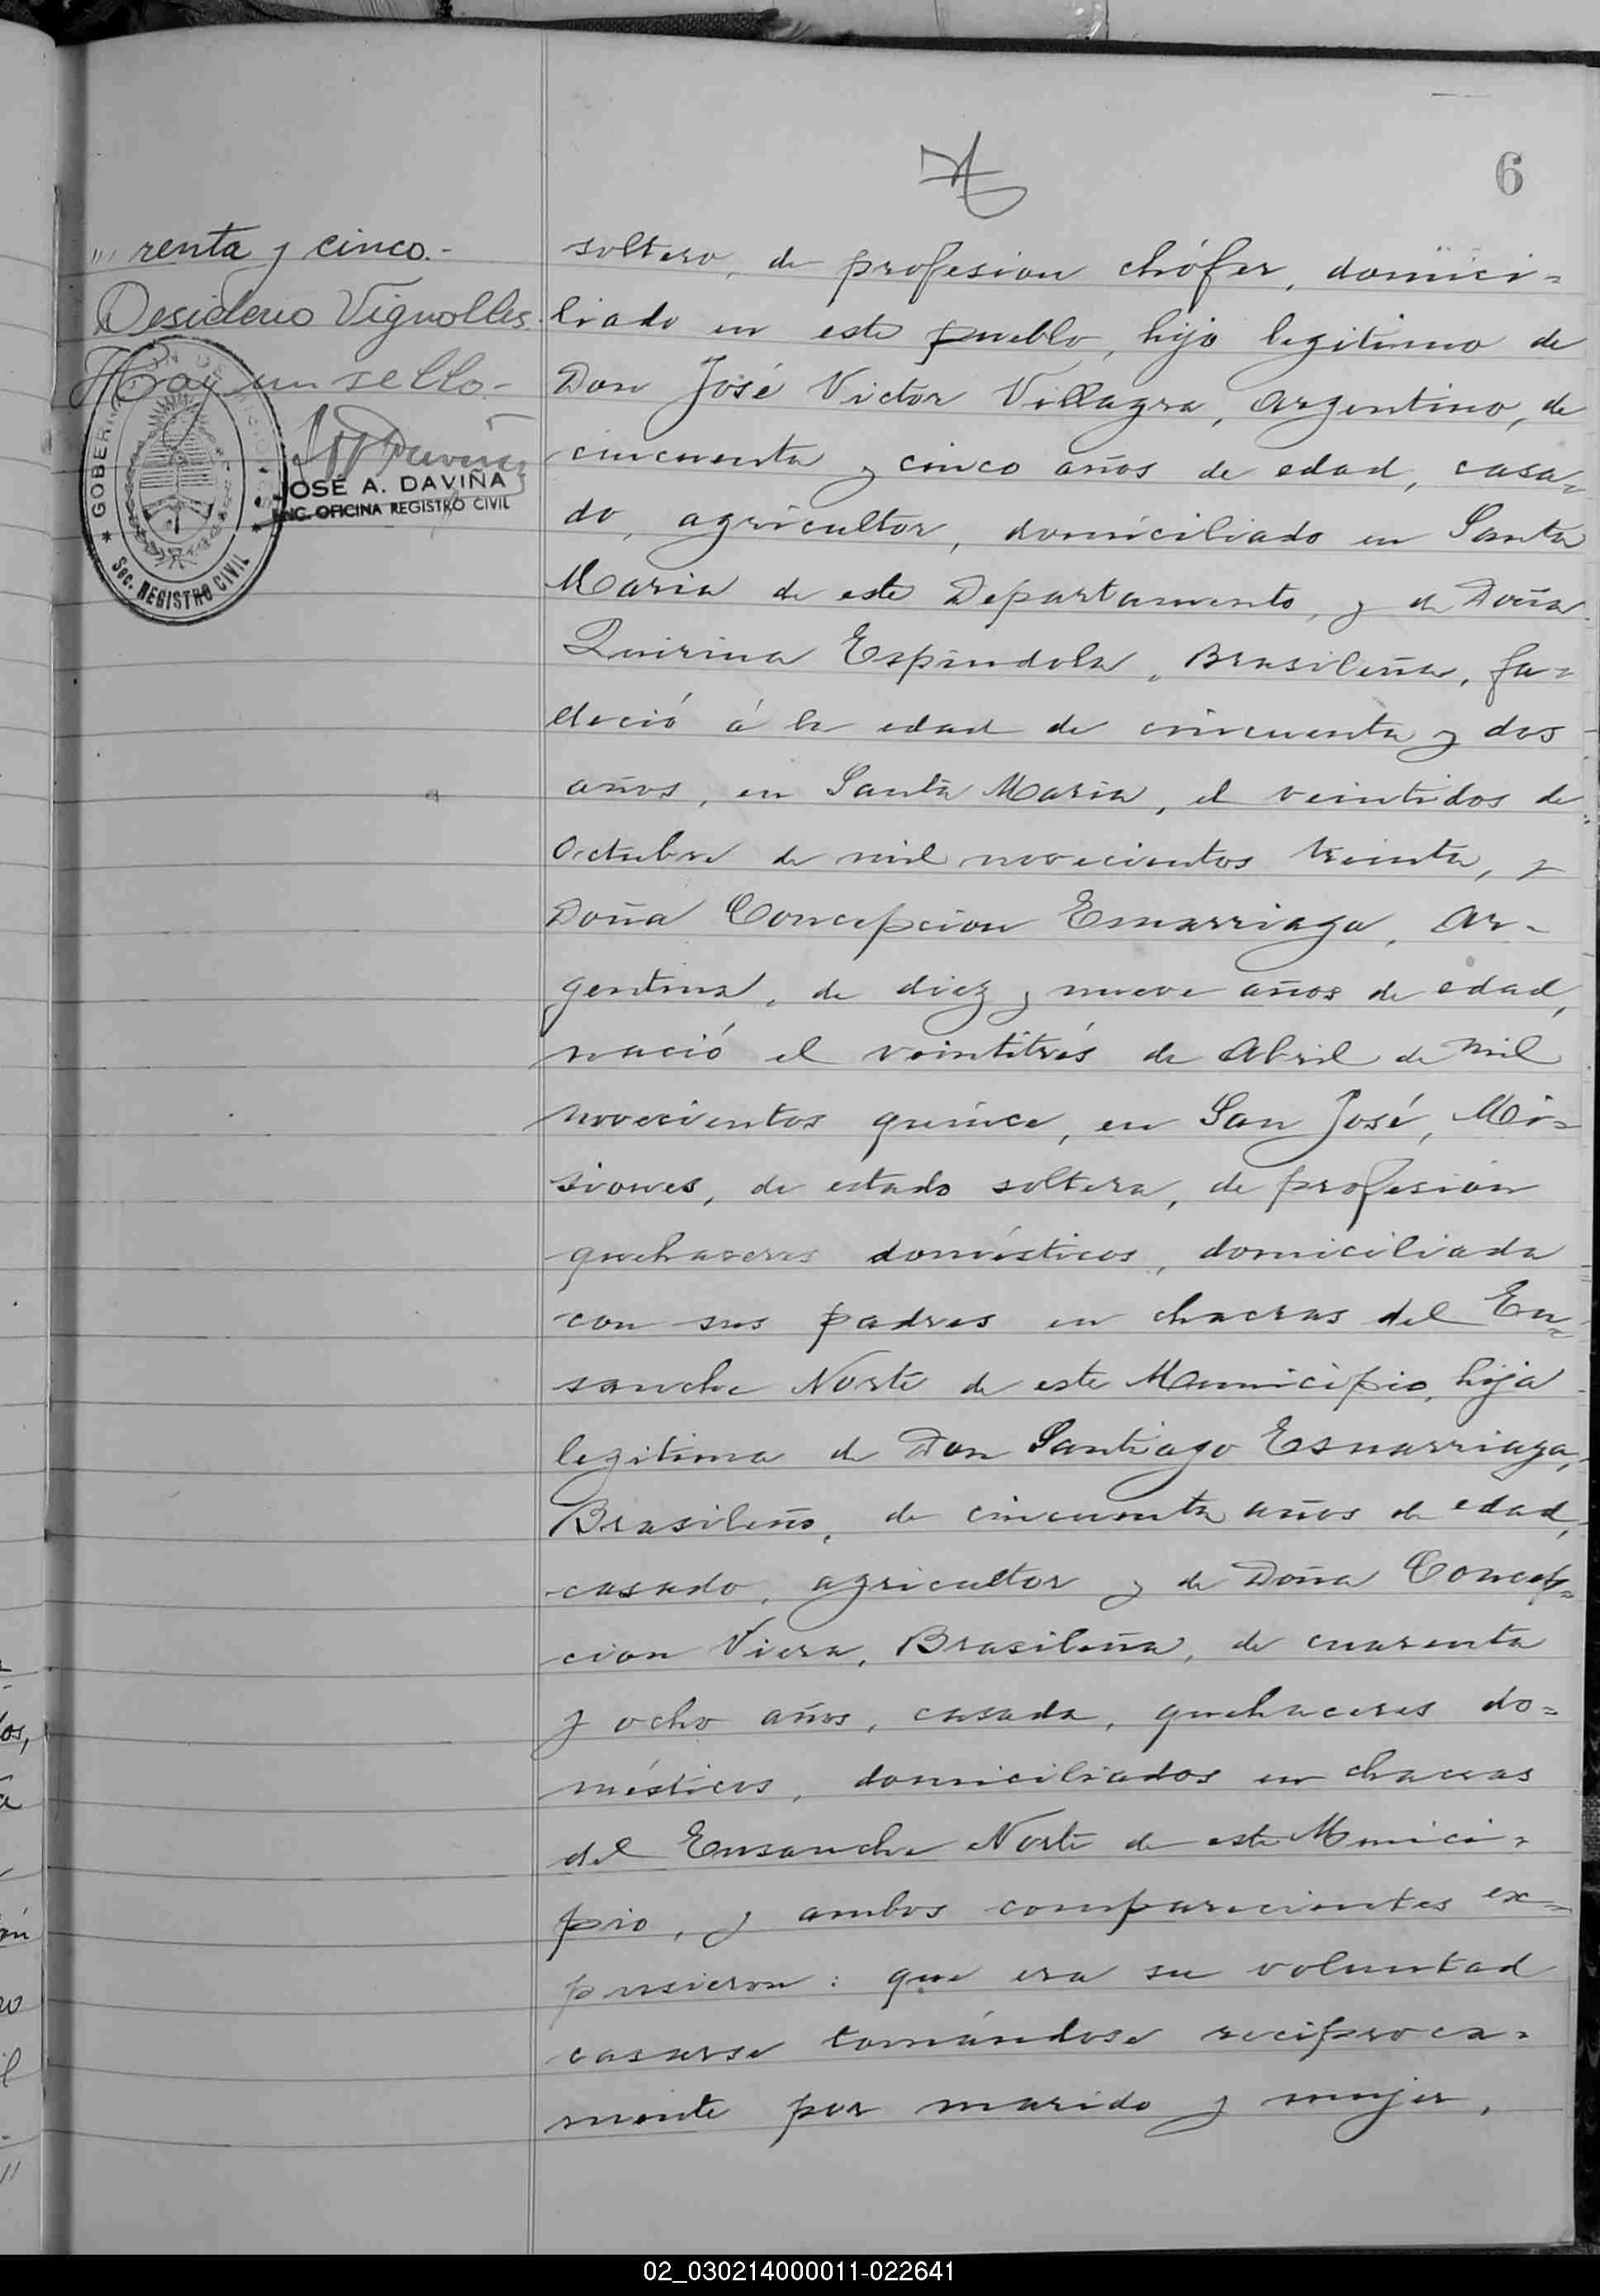 6
renta y cinco.-
Desiderio Vignolles.
Hay un sello.-
GOBER
JOSÉ A. DAVIÑA
ENC. OFICINA REGISTRO CIVIL
Sec. REGISTRO CIVIL
soltero, de profesion chófer, domici=
liado en este pueblo, hijo legitimo de
Don José Victor Villagra, Argentino, de
cincuenta y cinco años de edad, casa=
do, agricultor, domiciliado en Santa
Maria de este Departamento, y de Doña
Quirina Espindola, Brasileña, fa=
lleció á la edad de cincuenta y dos
años, en Santa Maria, el veintidos de
Octubre de mil novecientos treinta, y
Doña Concepcion Esnarriaga, Ar-
gentina, de diez y nueve años de edad,
nació el veintitrés de Abril de mil
novecientos quince, en San José, Mi=
siones, de estado soltera, de profesion
quehaceres domésticos, domiciliada
con sus padres en chacras del En=
sanche Norte de este Municipio, hija
legitima de Don Santiago Esnarriaga,
Brasileño, de cincuenta años de edad,
casado, agricultor y de Doña Concep=
cion Viera, Brasileña, de cuarenta
y ocho años, casada, quehaceres do=
mésticos, domiciliados en chacras
del Ensanche Norte de este Munici=
pio, y ambos comparecientes ex=
pusieron: que era su voluntad
casarse tomándose reciproca=
mente por marido y mujer,
02_030214000011-022641